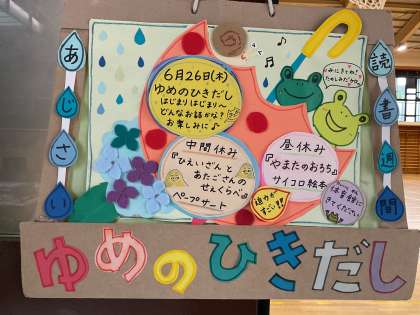 あじさい
読書週間
6月26日(木)
ゆめのひきだし
はじまりはじまり〜
どんなお話かな?
お楽しみに♪
みにきてね!
たのしみだケロ
中間休み
『ひえいざんと
あたごさんの
せいくらべ』
ペープサート
昼休み
『やまたのおろち』
サイコロ絵本
迫力が
すごい!!
体育館に
きてください
ゆめのひきだし